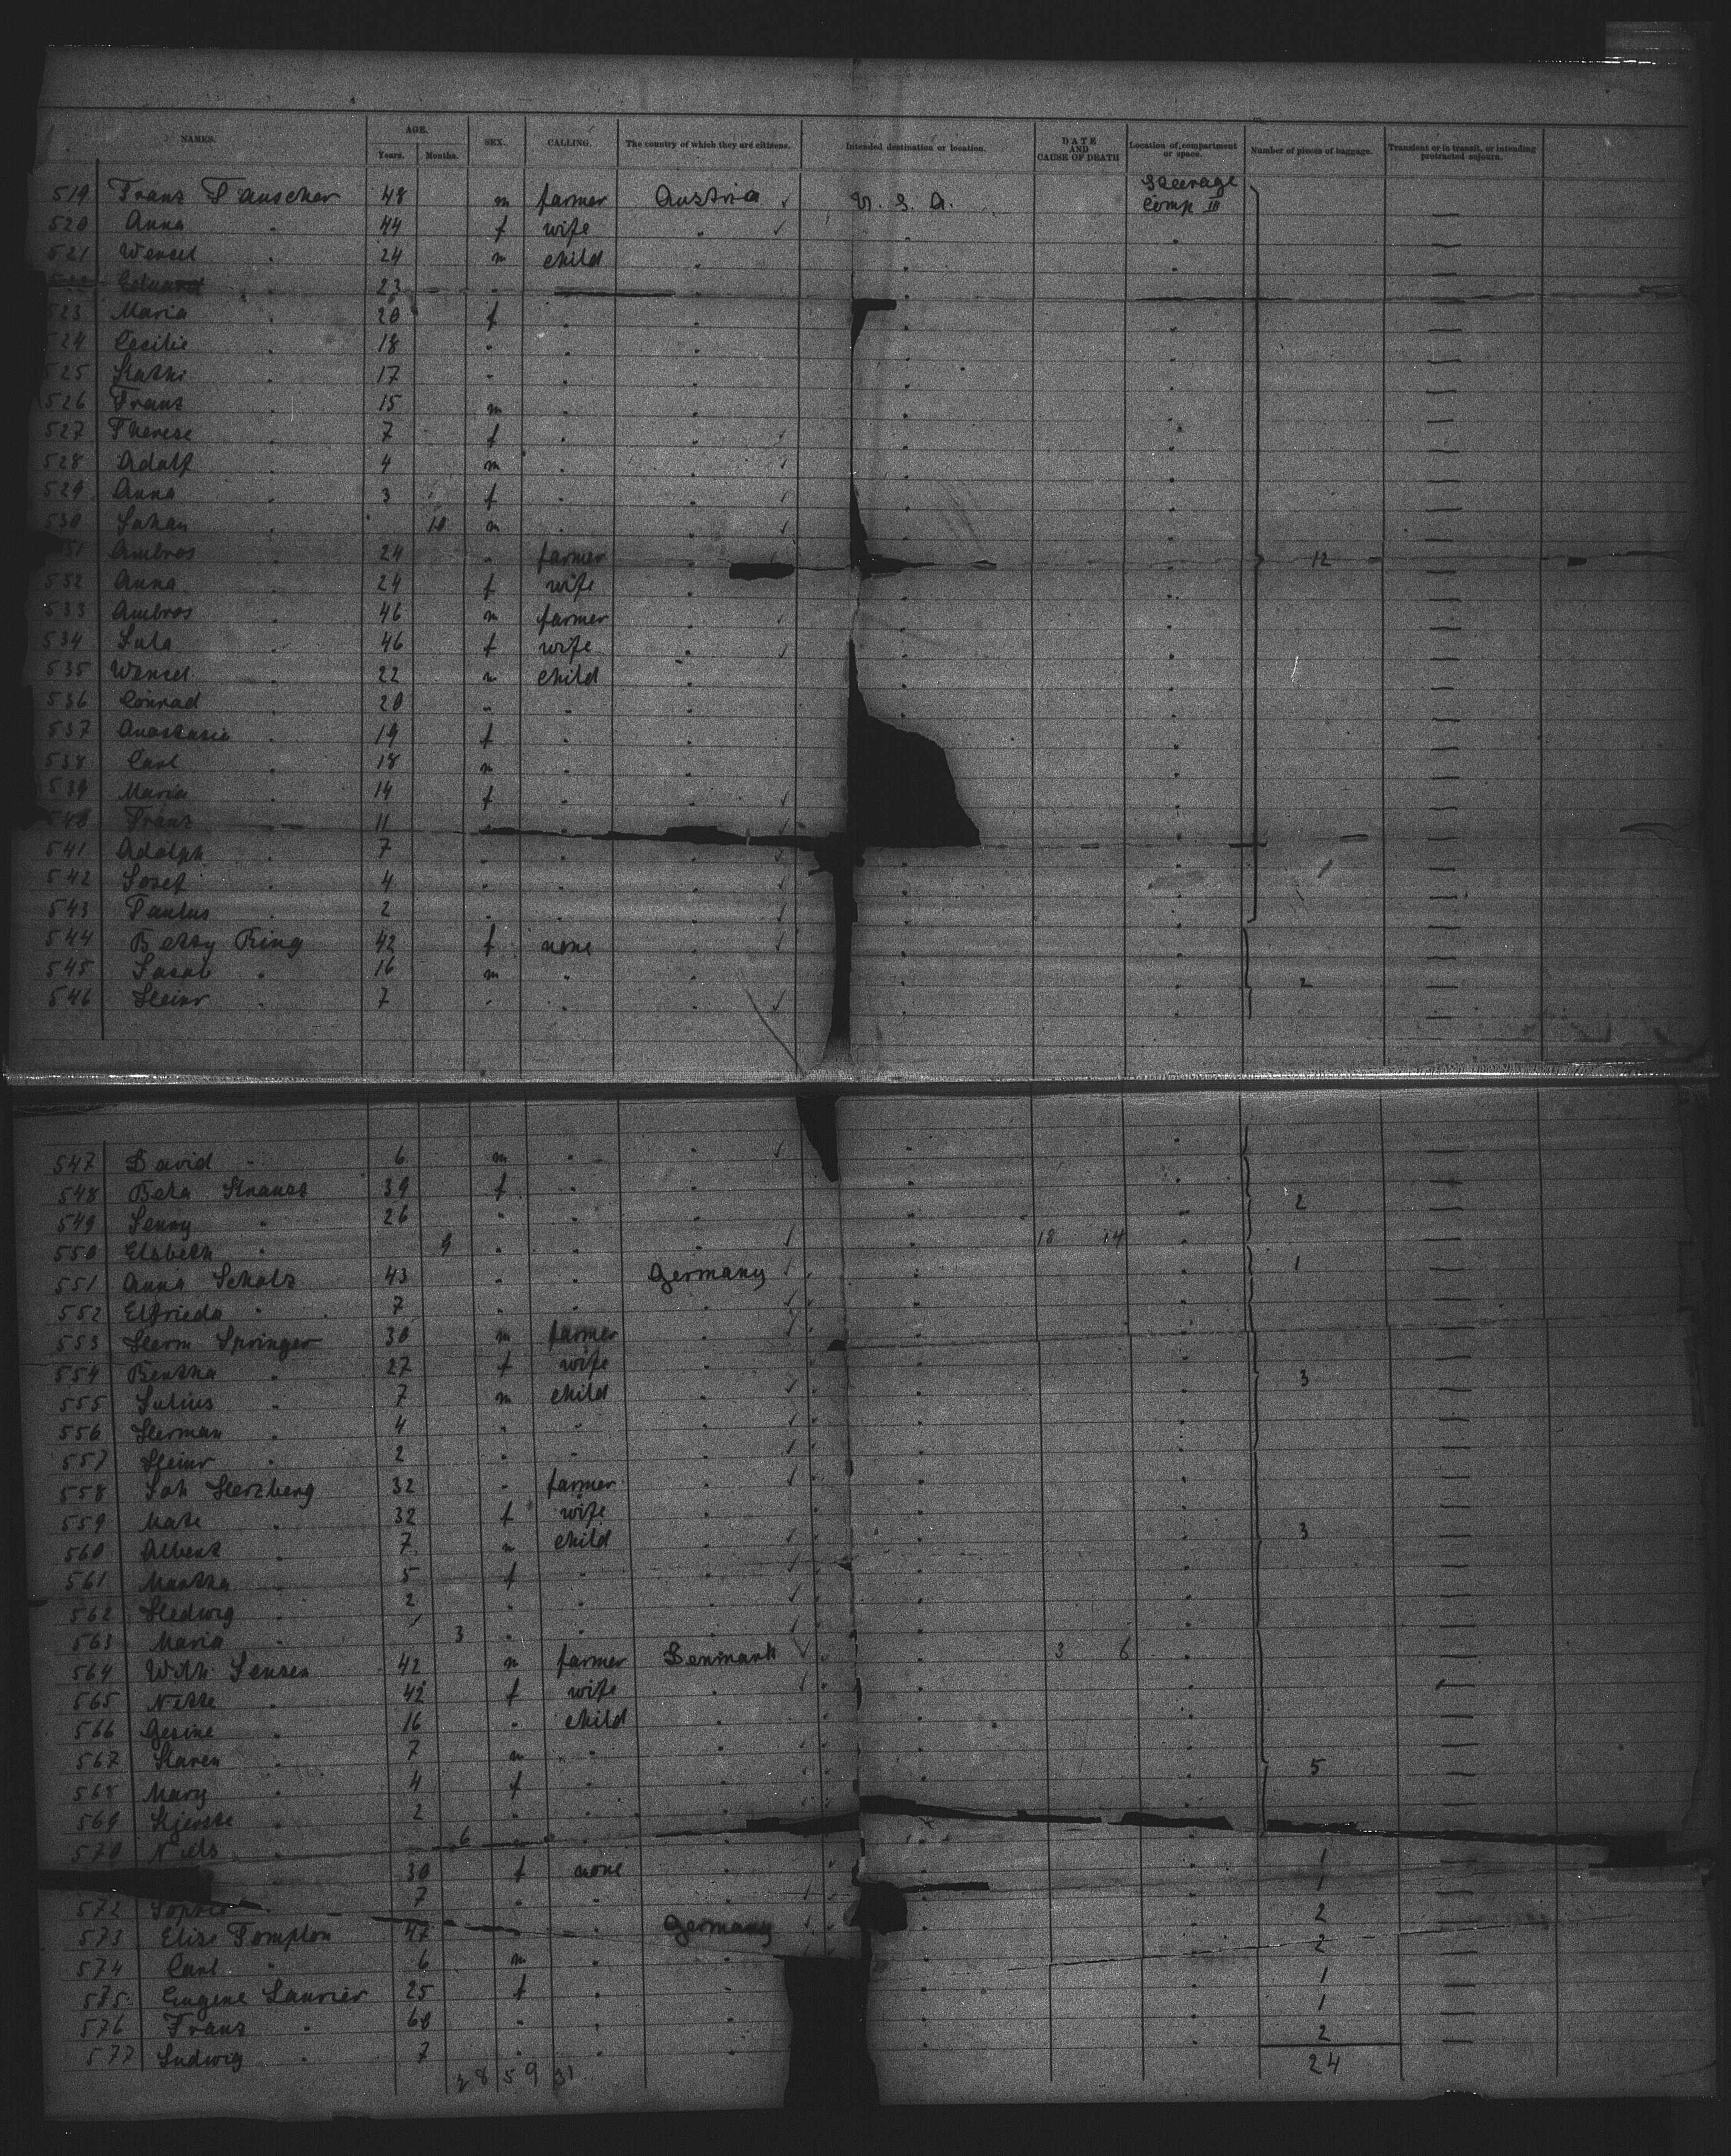 NAMES. AGE. Years. Months. SEX. CALLING. The country of which they are citizens. Intended destination or location. DATE AND CAUSE OF DEATH Location of compartment or space. Number of pieces of baggage. Transient or in transit, or intending protracted sojourn.
519 Franz Tauscher 48 m farmer Austria U. S. A. Steerage Comp III
520 Anna " 44 f wife "
521 Wenzel " 24 m child "
Eduard " 23 "
523 Maria " 20 f " "
524 Cecilie " 18 " " "
525 Kathi " 17 " " "
526 Franz " 15 m " "
527 Therese " 7 f " "
528 Adolf " 4 m " "
529 Anna " 3 f " "
530 Johan " 10 m " "
531 Ambros " 24 " farmer 12
532 Anna " 24 f wife "
533 Ambros " 46 m farmer "
534 Jula " 46 f wife "
535 Wenzel " 22 m child "
536 Conrad " 20 " " "
537 Anastasia " 19 f " "
538 Carl " 18 m " "
539 Maria " 14 f " "
540 Franz " 11 " "
541 Adolph " 7 " " "
542 Josef " 4 " " "
543 Paulus " 2 " " "
544 Betsy Ring 42 f none "
545 Jacob " 16 m " " 2
546 Heinr " 7 " " "
547 David " 6 m " "
548 Beta Strauss 39 f " " 2
549 Jenny " 26 " " "
550 Elsbeth " 9 " " " 18 14
551 Anna Scholz 43 " " Germany 1
552 Elfrieda " 7 " " "
553 Herm Springer 30 m farmer "
554 Bertha " 27 f wife " 3
555 Julius " 7 m child "
556 Herman " 4 " " "
557 Heinr " 2 " " "
558 Joh Herzberg 32 " farmer "
559 Mate " 32 f wife " 3
560 Albert " 7 m child "
561 Martha " 5 f " "
562 Hedwig " 2 " " "
563 Maria " 3 " " "
564 Wilh Jensen 42 m farmer Denmark 3 6
565 Nette " 42 f wife "
566 Gesine " 16 " child "
567 Karen " 7 m " " 5
568 Mary " 4 f " "
569 Kjerste " 2 " " "
570 Niels " 6 " " 1
30 f none " 1
572 Sophie 7 " " " 2
573 Elise Pomplon 47 " " Germany 2
574 Carl " 6 m " " 1
575 Eugene Laurier 25 f " " 1
576 Franz " 60 " " " 2
577 Ludwig " 7 " " " 24
28 59 31